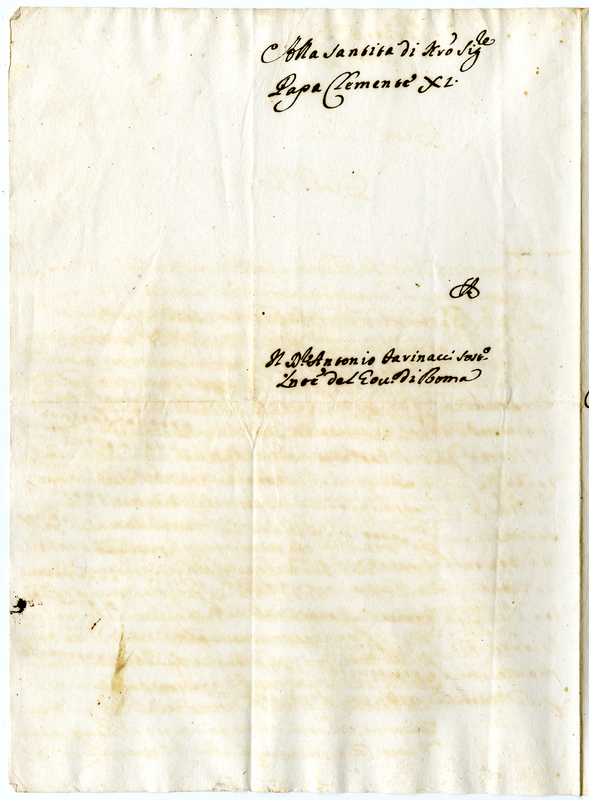 Alla Santita di Nrō Sigre
Papa Clemente XI.
Il Dre Antonio Farinacci Sosto
del Gou. di Roma